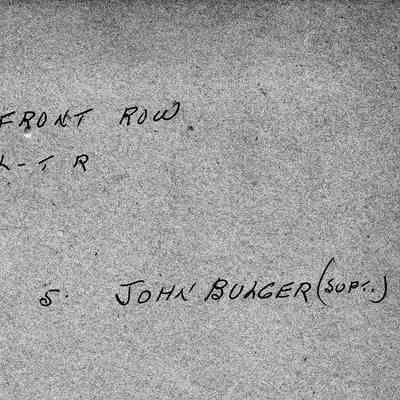 FRONT ROW
L-T R
5. JOHN BULGER (SUPT.)